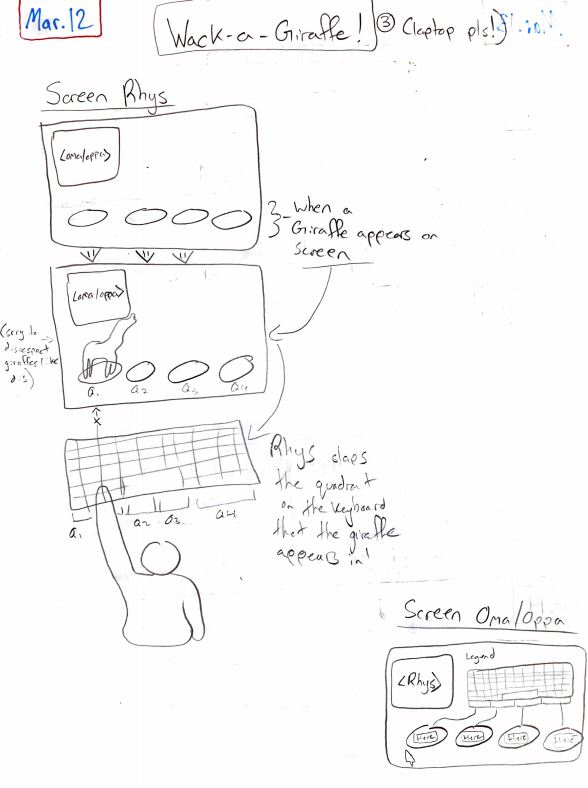 Mar. 12
Wack-a-Giraffe!
③ Claptop pls!)
Screen Rhys
<oma/oppa>
When a
Giraffe appears on
Screen
<oma/oppa>
(sorry to
disrespect
giraffes like
dis)
a1 a2 a3 a4
x
Rhys claps
the quadrant
on the keyboard
that the giraffe
appears in!
a1 a2 a3 a4
Screen Oma/Oppa
Legend
<Rhys>
Here Here Here Here